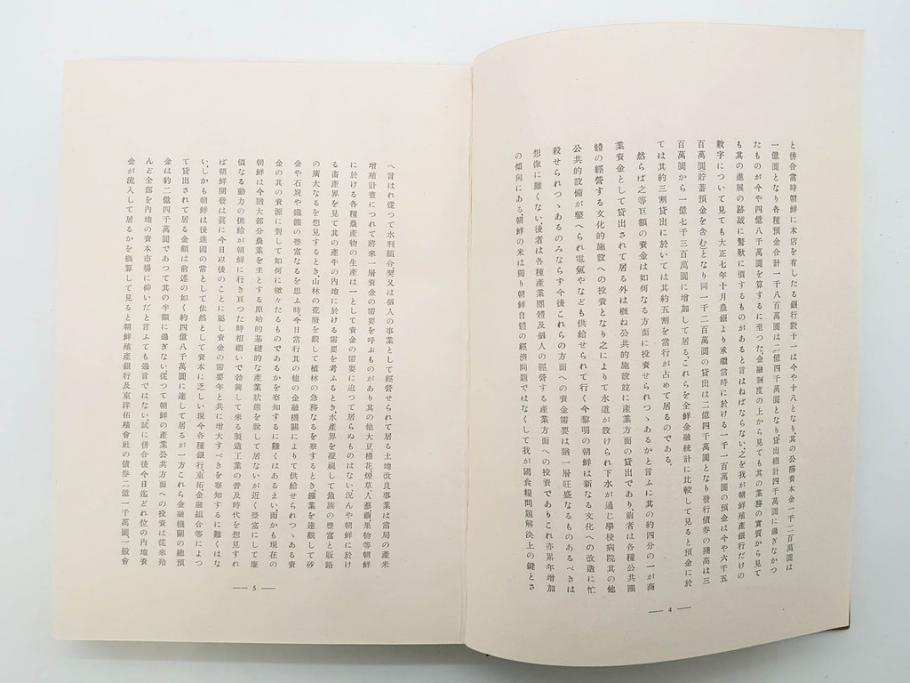 と併合當時朝鮮に本店を有したる銀行數十一は今や十八となり、其の公稱資本金一千二百萬圓は
一億圓となり各種預金合計一千八百萬圓は二億四千萬圓となり貸出總計四千萬圓に過ぎなかつ
たものが今や四億八千萬圓を算するに至つた。金融制度の上から見ても其の業務の實質から見て
も其の進展の跡誠に驚歎に値するものがあると言はねばならない、之を我が朝鮮殖產銀行だけの
數字について見ても大正七年十月農銀より承繼當時に於ける一千一百萬圓の預金は今や六千五
百萬圓(貯蓄預金を含む)となり同一千二百萬圓の貸出は二億四千萬圓となり發行債券の殘高は三
百萬圓から一億七千三百萬圓に增加して居る、これらを全鮮金融統計に比較して見ると預金に於
ては其約三割貸出に於いては其約五割を當行が占めて居るのである。
然らば之等巨額の資金は如何なる方面に投資せられつゝあるかと言ふに其の約四分の一が商
業資金として貸出されて居る外は概ね公共的施設竝に產業方面の貸出であり、前者は各種公共團
體の經營する文化的施設への投資となり之によりて水道が設けられ下水が通じ學校病院其の他
公共的設備が整へられ電氣やなども供給せられて行く今黎明の朝鮮は新なる文化への改造に忙
殺せられつゝあるのみならず今後これらの方面への資金需要は猶一層旺盛なるものあるべきは
想像に難くない、後者は各種產業團體及個人の經營する產業方面への投資でありこれ亦累年增加
の傾向にある、朝鮮の米は獨り朝鮮自體の經濟問題ではなくして我が國食糧問題解決上の鍵とさ
— 4 —
へ言はれ從つて水利組合又は個人の事業として經營せられて居る土地改良事業は當局の產米
增殖計畫につれて將來一層資金の需要を呼ぶものがあり其の他大豆棉花煙草人蔘繭果物等朝鮮
に於ける各種農產物の生產は一として資金の需要に迫つて居らぬものはない、況んや朝鮮に於け
る畜產界を見て其の產牛の內地に於ける需要を考ふるとき、漁業界を凝視して魚族の豐富と販路
の廣大なるを想見するとき、山林の荒廢を觀して植林の急務なるを察するとき鑛業を達觀して砂
金や石炭や鐵鑛の豐富なるを思ふ時、今日當行其の他の金融機關によりて供給せられつゝある資
金の其の資源に對して如何に微々たるものであるかを察知するに難くはあるまい、而かも現在の
朝鮮は今猶大部分農業を主とする原始的基礎的な產業狀態を脫して居ないが近く豐富にして廉
價なる動力の供給が朝鮮に行き亙つた時相嗣いで勃興して來る製造工業の普及時代を想見すれ
ば朝鮮開發は眞に今日以後のことに屬し資金の需要年と共に增大すべきを察知するに難くはな
い、しかも朝鮮は後進國の常として依然として資本に乏しい現今各種銀行東拓金融組合等によつ
て貸出されて居る金額は前述の如く約四億八千萬圓に達して居るが一方これら金融機關の總預
金は約二億四千萬圓であつて其の半額に過ぎない從つて朝鮮の產業公共方面への投資は從來殆
んど全部を內地の資本市場に仰いだと言ふても過言ではない、試に併合後今日迄どれ位の內地資
金が流入して居るかを概算して見ると朝鮮殖產銀行及東洋拓殖會社の債券二億一千萬圓、一般會
— 5 —